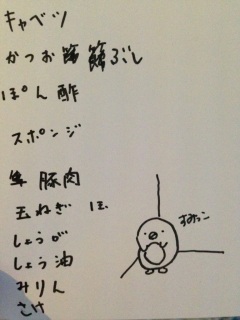 キャベツ
かつお節ぶし
ぽん酢
スポンジ
豚肉
玉ねぎ
しょうが
しょう油
みりん
さけ
すみっこ